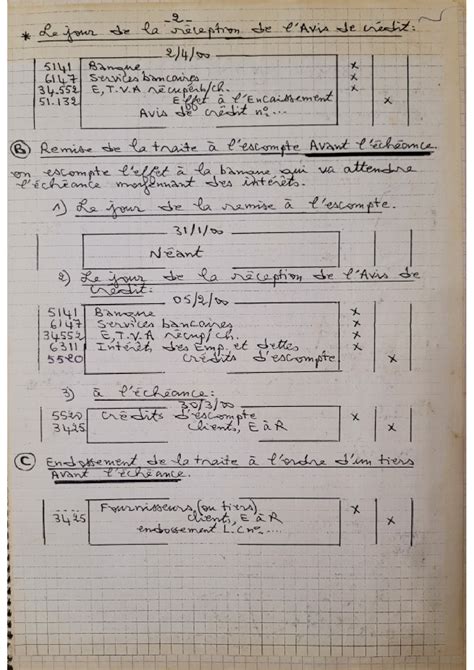 -2-
* Le jour de la réception de l'Avis de crédit:
2/4/00
5141 Banque x
6147 Services bancaires x
34.552 E, T.V.A récupérb/ch. x
51.132 Effet à l'Encaissement x
Avis de crédit n°...
(B) Remise de la traite à l'escompte Avant l'échéance.
on escompte l'effet à la banque qui va attendre
l'échéance moyennant des intérêts.
1) Le jour de la remise à l'escompte.
31/1/00
Néant
2) Le jour de la réception de l'Avis de
crédit:
05/2/00
5141 Banque x
6147 Services bancaires x
34552 E, T.V.A récup/ch. x
6311 Intérêt des Emp. et dettes x
5520 Crédits d'escompte x
3) à l'échéance:
30/3/00
5520 Crédits d'escompte x
3425 Clients, E à R x
(C) Endossement de la traite à l'ordre d'un tiers
Avant l'échéance.
.... Fournisseurs, (ou tiers) x
3425 Clients, E à R x
endossement L.C n°....